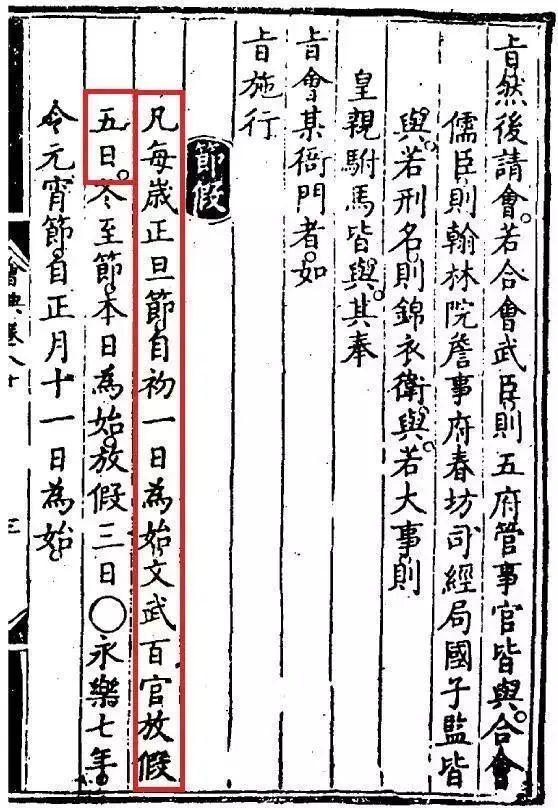 旨然後請會。若合會武臣則五府管事官皆與。合會
儒臣則翰林院詹事府春坊司經局國子監皆
與。若刑名則錦衣衛與。若大事則
皇親駙馬皆與。其奉
旨會某衙門者。如
旨施行
節假
凡每歲正旦節自初一日為始。文武百官放假
五日。冬至節本日為始。放假三日○永樂七年。
令元宵節自正月十一日為始。
會典卷八十
三